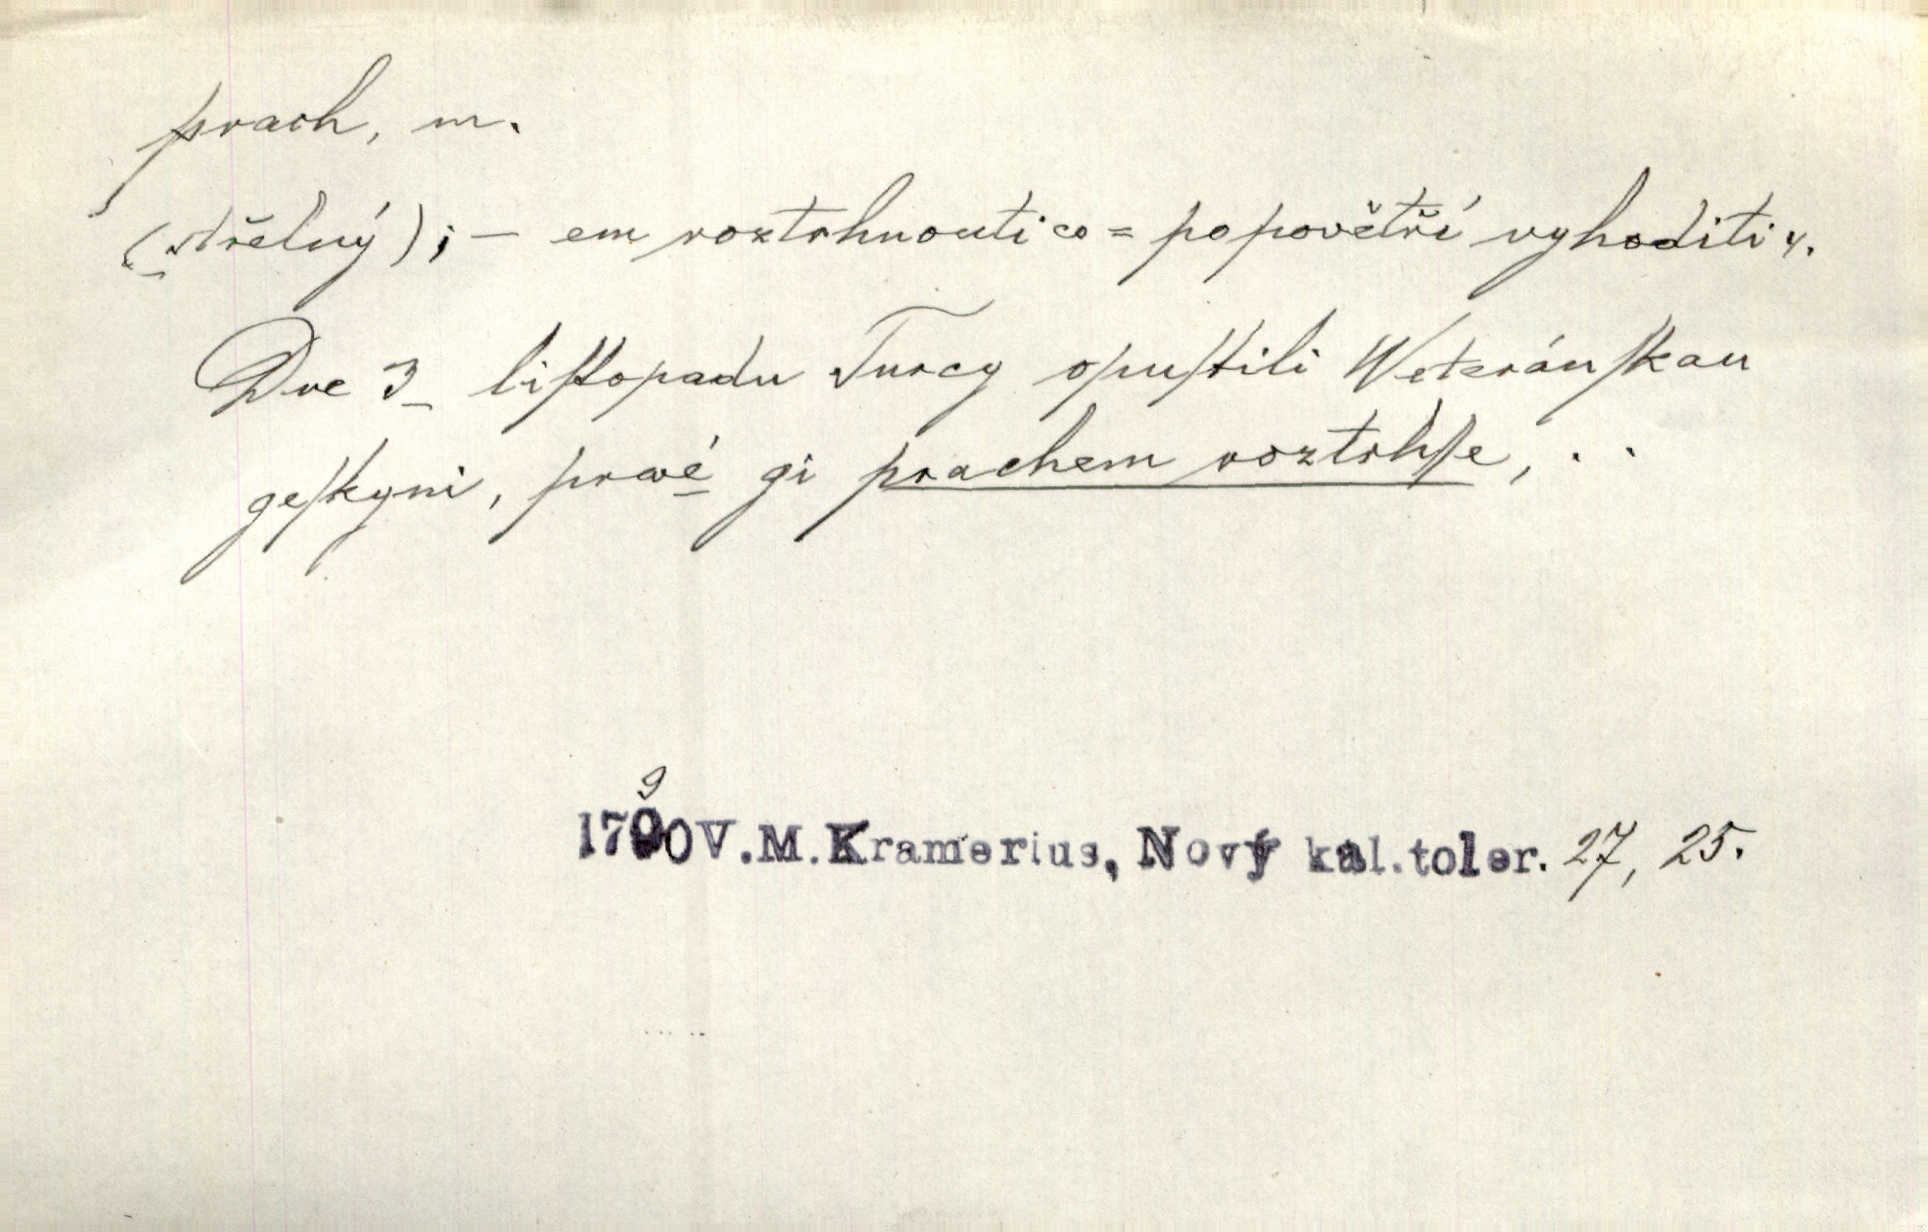 prach, m.
(střelný); – em roztrhnouti co = popovětří vyhoditi v.
Dne 3 liſtopadu Turcy opuſtili Weteránſkau
geſkyni, prwé gi prachem roztrhſſe, . .
9
1790 V.M. Kramerius, Nový kal. toler. 27, 25.